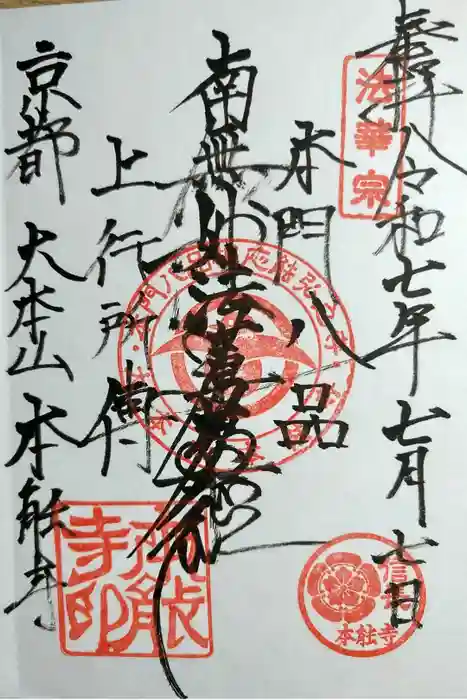 奉拝 令和七年七月七日
法華宗
本門八品
南無妙法蓮華経
上行所傳
京都 大本山 本能寺
本能寺印
信長
本能寺